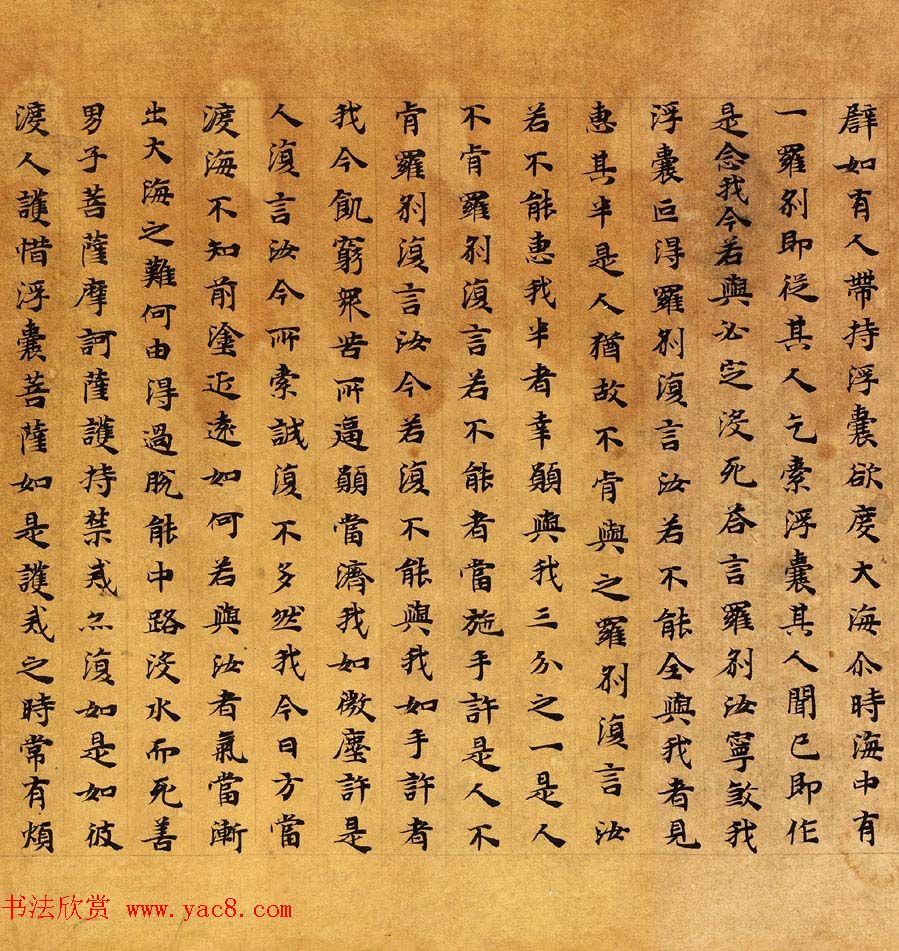 辟如有人帶持浮囊欲度大海尒時海中有
一羅刹即從其人乞索浮囊其人聞已即作
是念我今若與必定没死荅言羅刹汝寧煞我
浮囊叵得羅刹復言汝若不能全與我者見
惠其半是人猶故不肯與之羅刹復言汝
若不能惠我半者幸願與我三分之一是人
不肯羅刹復言若不能者當施手許是人不
肯羅刹復言汝今若復不能與我如手許者
我今飢窮衆苦所逼願當濟我如微塵許是
人復言汝今所索誠復不多然我今日方當
渡海不知前塗近遠如何若與汝者氣當漸
出大海之難何由得過脫能中路没水而死善
男子菩薩摩訶薩護持禁戒亦復如是如彼
渡人護惜浮囊菩薩如是護戒之時常有煩
书法欣赏 www.yac8.com